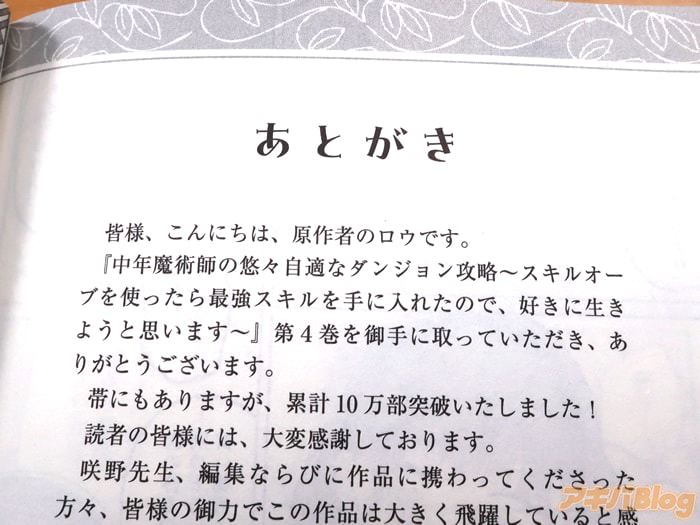 あとがき
皆様、こんにちは、原作者のロウです。
『中年魔術師の悠々自適なダンジョン攻略～スキルオー
ブを使ったら最強スキルを手に入れたので、好きに生き
ようと思います～』第4巻を御手に取っていただき、あ
りがとうございます。
帯にもありますが、累計10万部突破いたしました！
読者の皆様には、大変感謝しております。
咲野先生、編集ならびに作品に携わってくださった
方々、皆様の御力でこの作品は大きく飛躍していると感
アキバBlog